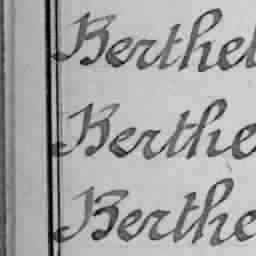 Berthel
Berthe
Berthe